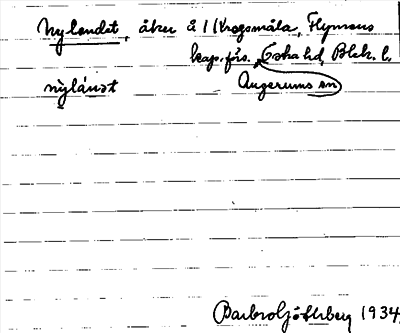 Nylandet, åker å 1 Krogsmåla, Flymens
kap.förs. Östra hd, Blek. l.
nỳlánət Augerums sn
Barbro Göthberg 1934